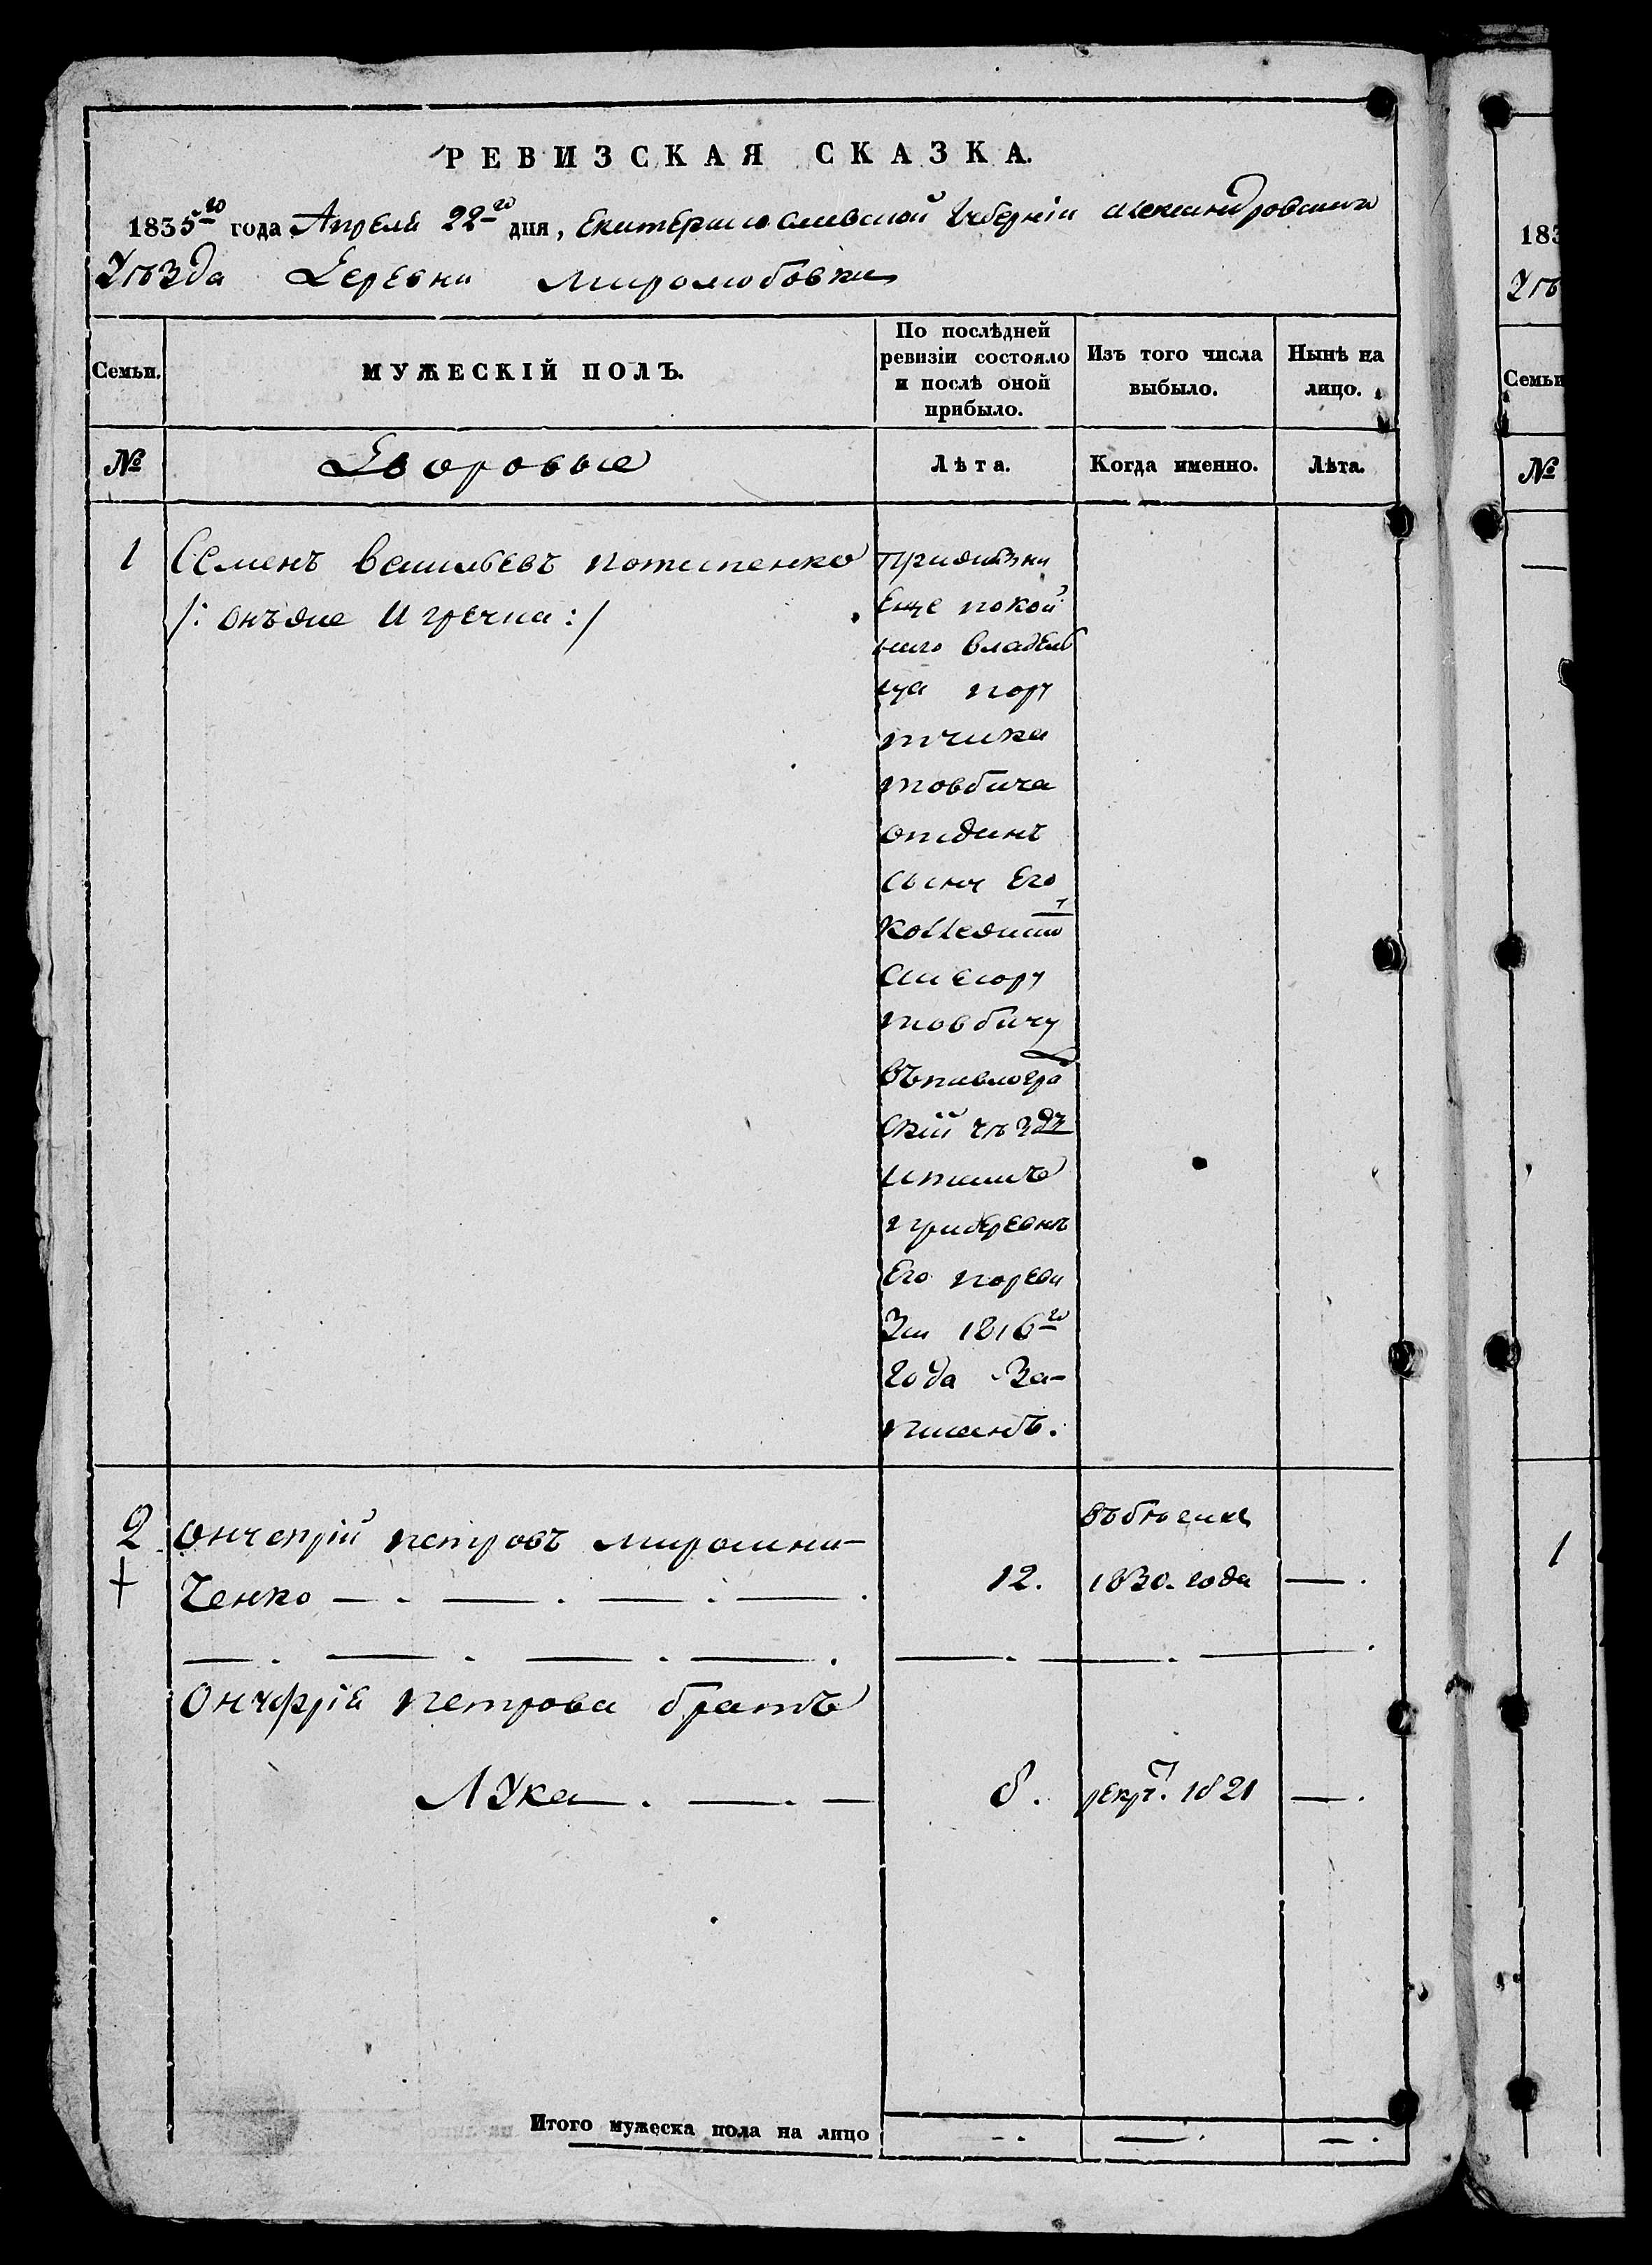 РЕВИЗСКАЯ СКАЗКА.
1835го года Апреля 22го дня, Екатеринославской Губерніи Александровскаго
Уѣзда Деревни Миролюбовки
Семьи.
МУЖЕСКІЙ ПОЛЪ.
По послѣдней ревизіи состояло и послѣ оной прибыло.
Изъ того числа выбыло.
Нынѣ на лицо.
№
Дворовые
Лѣта.
Когда именно.
Лѣта.
1
Семенъ Васильевъ Потапенко
/: онъ же Игречка :/
При жизни
Еще покой
наго владѣль
ца пору
тчика
Товбича
отданъ
сыну Его
Коллежскому
Асесору
Товбичу
въ павлогра
дскій уѣздъ
и тамъ
при деревнѣ
Его по реви
зіи 1816го
Года За-
писанъ.
2
Онуфрій Петровъ Мирошни-
ченко
12.
въ бѣгахъ
1830. года
Онуфрія Петрова братъ
Лука
8.
рекру. 1821
Итого мужеска пола на лицо
183
Уѣ
Семьи
№
1